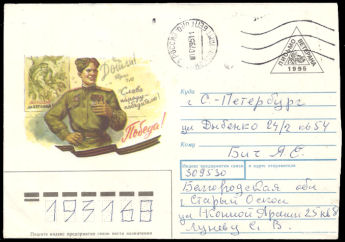 Дошли!
Слава
народу-
победителю!
Победа!
ПИСЬМО ВЕТЕРАНА
1995
Куда
г. С-Петербург
ул Дыбенко 24/2 кв 54
Кому
Бич А Е.
Индекс предприятия связи и адрес отправителя
309530
Белгородская обл
г Старый Оскол
ул I Конной Армии 25 кв 8
Лунёву С. В.
193168
Пишите индекс предприятия связи места назначения